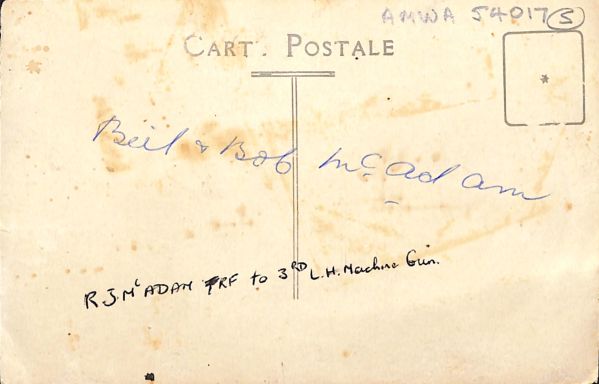 AMWA 54017 S
CARTE POSTALE
Beil & Bob McAdam
R J Mc ADAM TRF to 3RD L.H. Machine Gun.